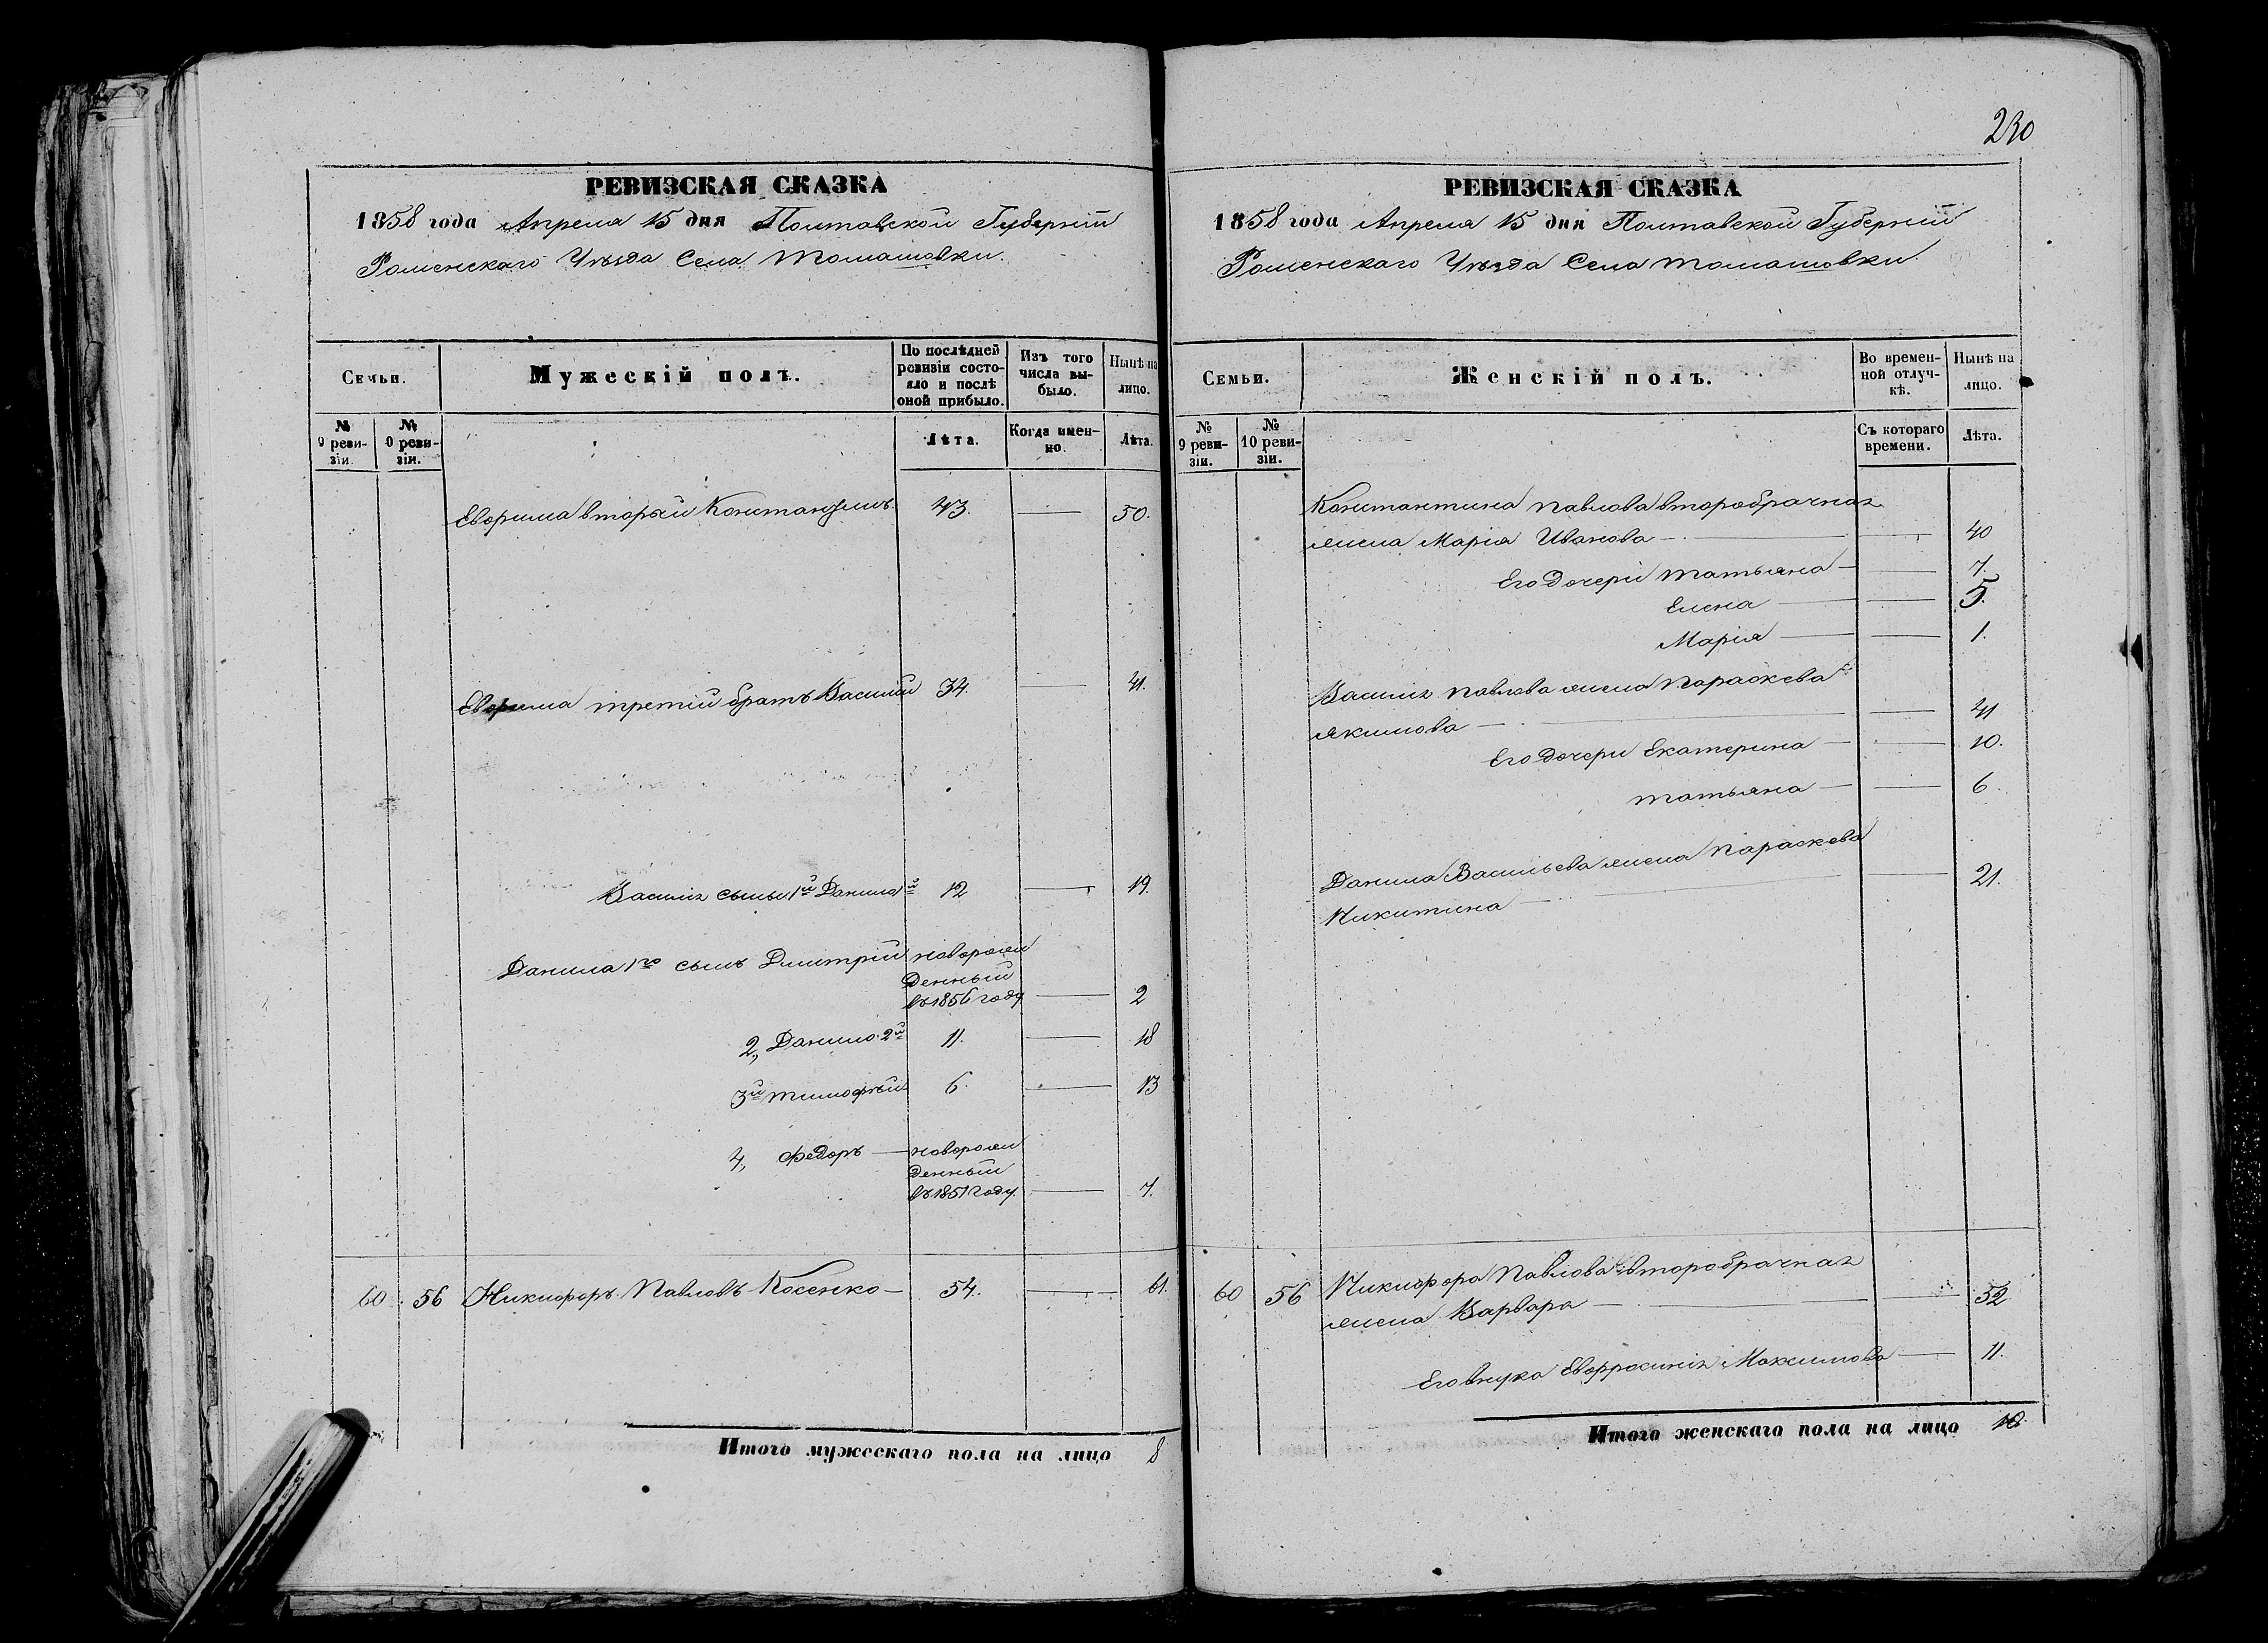 230
РЕВИЗСКАЯ СКАЗКА
1858 года Апреля 15 дня Полтавской Губернiи
Роменскаго Уѣзда Села Томашовки.
Семьи.
Мужескій полъ.
По послѣдней ревизіи состояло и послѣ оной прибыло.
Изъ того числа выбыло.
Нынѣ на лицо.
№ 9 ревизіи.
№ 0 ревизіи.
Лѣта.
Когда именно.
Лѣта.
Евфима вторый Константинъ 43. — 50.
Евфима третій братъ Василій 34. — 41.
Василія сыны 1й Данило 1й 12 — 19.
Данила 1го сынъ Дмитрій новорож
денный
въ 1856 году — 2
2, Данило 2й 11. — 18
3й Тимофѣй 6. — 13
4, Федоръ — новорож
денный
въ 1851 году. — 7.
60 56 Никифоръ Павловъ Косенко — 54. — 61.
Итого мужескаго пола на лицо 8
РЕВИЗСКАЯ СКАЗКА
1858 года Апреля 15 дня Полтавской Губерніи
Роменскаго Уѣзда Села Томашовки.
Семьи.
Женскій полъ.
Во временной отлучкѣ.
Нынѣ на лицо.
№ 9 ревизіи.
№ 10 ревизіи.
Съ котораго времени.
Лѣта.
Константина Павлова второбрачная
жена Марія Иванова — — 40
Его дочери Татьяна — — 7.
Елена — — 5.
Марія — — 1.
Василія Павлова жена Параскева
Якимова — — 41
Его дочери Екатерина — — 10.
Татьяна — — 6.
Данила Васильева жена Параскева
Никитина — — 21.
60 56 Никифора Павлова второбрачная
жена Варвара — — 52
Его внука Евфросинія Максимова — 11.
Итого женскаго пола на лицо 10